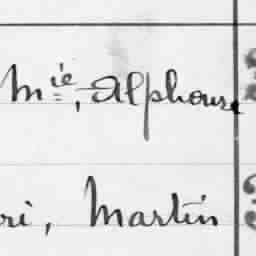 Mie, Alphonse
ri, Martin